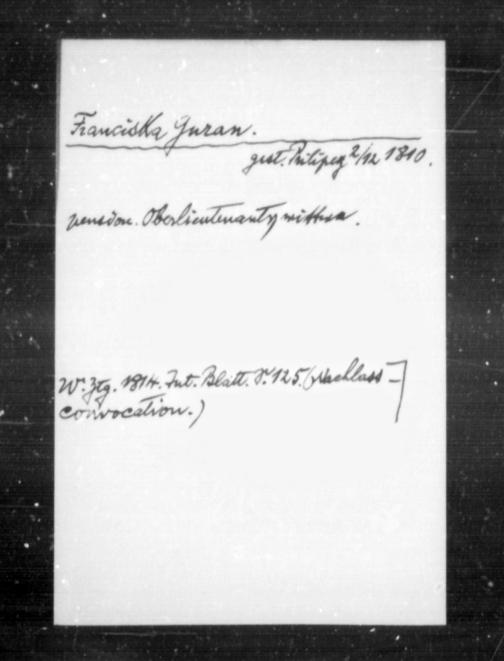 Franciska Guran.
gest. Prilipez 2/12 1810.
pension. Oberlieutenantswittwe.
W. Ztg. 1814. Int. Blatt. S. 125. (Nachlass-
convocation.)